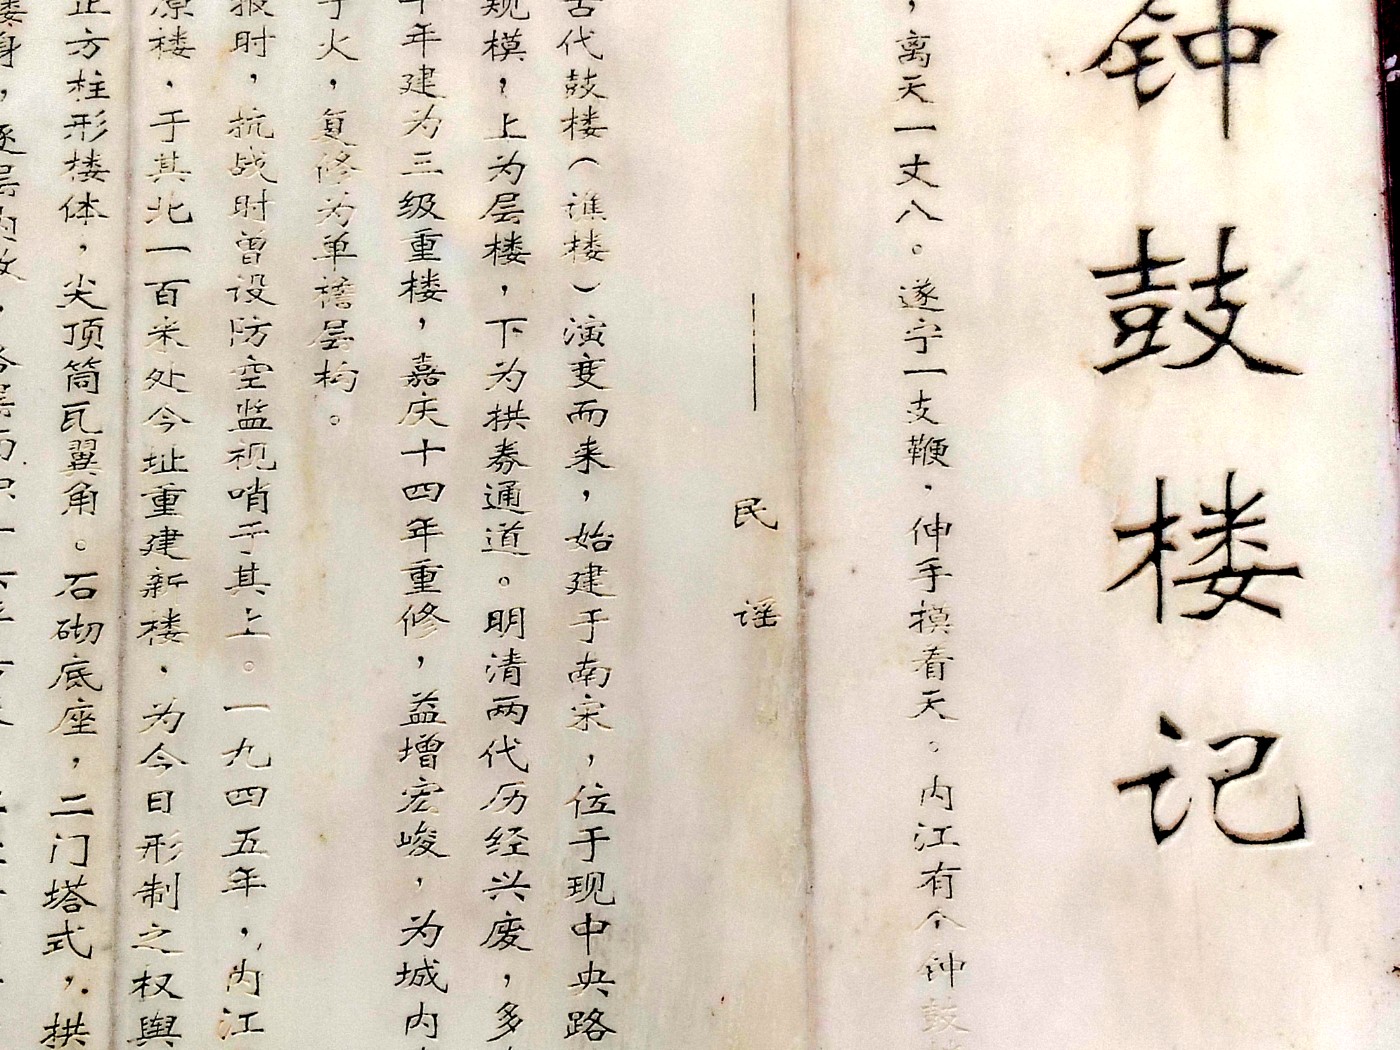 钟鼓楼记
，离天一丈八。遂宁一支鞭，伸手摸着天。内江有个钟鼓
——民谣
古代鼓楼（谯楼）演变而来，始建于南宋，位于现中央路
规模，上为层楼，下为拱券通道。明清两代历经兴废，多
十年建为三级重楼，嘉庆十四年重修，益增宏峻，为城内
于火，复修为单檐层构。
报时，抗战时曾设防空监视哨于其上。一九四五年，内江
原楼，于其北一百米处今址重建新楼，为今日形制之权舆
正方柱形楼体，尖顶筒瓦翼角。石砌底座，二门塔式，拱
楼身，逐层内收，